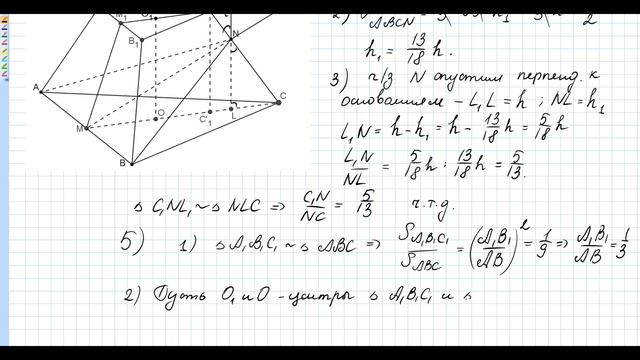 M₁ O₁
B₁ N
A
O C'₁ L C
M
B
2) V ABCN = 2
h₁ = 13/18 h.
3) ч/з N опустим перпенд. к
основаниям – L₁L = h ; NL = h₁
L₁N = h - h₁ = h - 13/18 h = 5/18 h
L₁N/NL = 5/18 h : 13/18 h = 5/13.
△ C₁NL₁ ~ △ NLC => C₁N/NC = 5/13 ч.т.д.
5) 1) △ A₁B₁C₁ ~ △ ABC => S A₁B₁C₁/S ABC = (A₁B₁/AB)² = 1/9 => A₁B₁/AB = 1/3
2) Пусть O₁ и O – центры △ A₁B₁C₁ и △